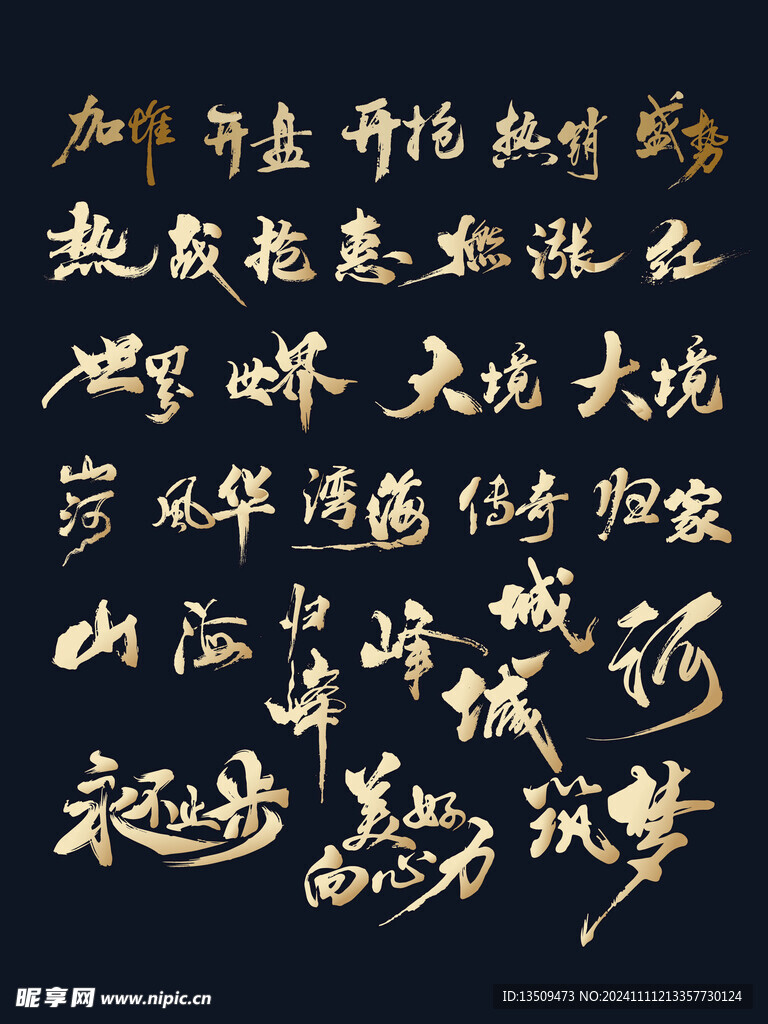 加推 开盘 开抢 热销 盛势
热 战 抢 惠 燃 涨 红
世界 世界 大境 大境
山河 風华 湾海 传奇 归家
山 海 归峰 峰 城 城 河
永不止步 美好向心力 筑梦
昵享网 www.nipic.cn
ID:13509473 NO:20241111213357730124